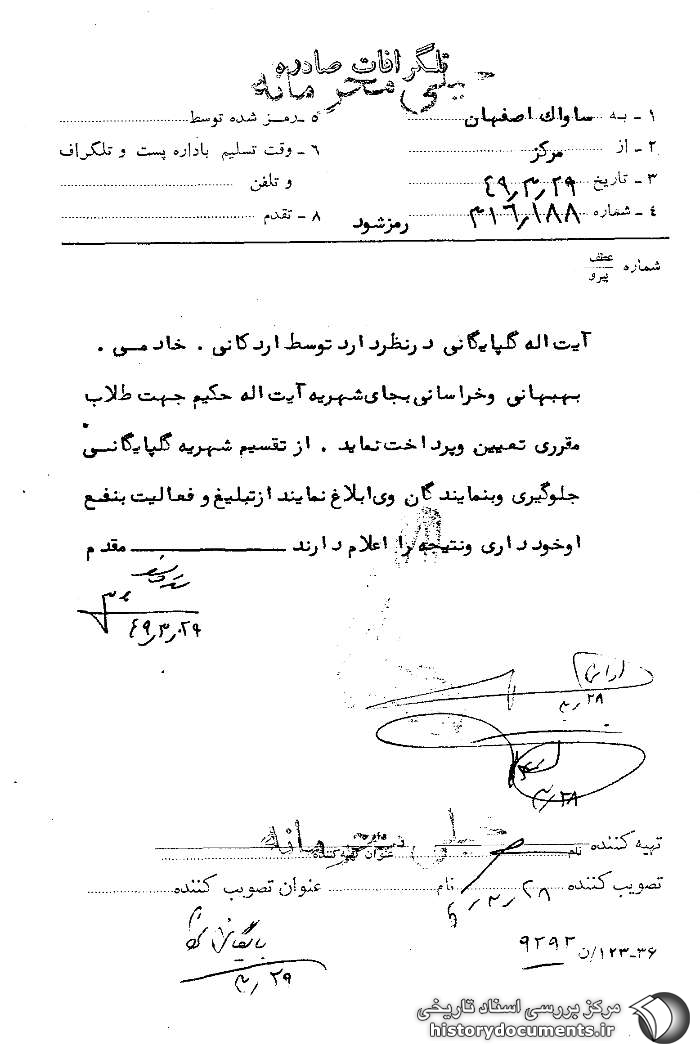 تلگرافات صادره
خیلی محرمانه
۱ - به ساواک اصفهان
۲ - از مرکز
۳ - تاریخ ۴۹/۳/۲۹
۴ - شماره ۳۱۶/۱۸۸
۵ - رمز شده توسط
۶ - وقت تسلیم باداره پست و تلگراف
و تلفن
۸ - تقدم
رمز شود
شماره عطف
پیرو
آیت اله گلپایگانی در نظر دارد توسط اردکانی . خادمی .
بهبهانی وخراسانی بجای شهریه آیت اله حکیم جهت طلاب
مقرری تعیین وپرداخت نماید . از تقسیم شهریه گلپایگانی
جلوگیری وبنمایندگان وی ابلاغ نمایند از تبلیغ و فعالیت بنفع
او خودداری ونتیجه را اعلام دارند ـــــــــ مقدم
۴۹/۳/۲۹
۲۸/۳
۲۸/۳
خیلی محرمانه
تهیه کننده نام عنوان تهیه کننده
تصویب کننده نام عنوان تصویب کننده
۲۸/۳/
بایگانی
۲۹/۳
۹۲۹۲
۳۶-۱۲۳/ن
مرکز بررسی اسناد تاریخی
historydocuments.ir